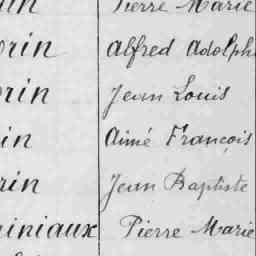 Pierre Marie
rin Alfred Adolph
rin Jean Louis
in Aimé François
rin Jean Baptiste
iniaux Pierre Marie